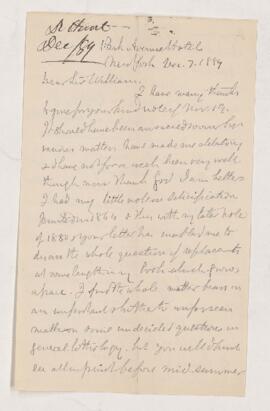 Hunt
Dec/89
Park Avenue Hotel
New York Dec. 7. 1889
Dear Sir William.
I have many thanks
to give for your kind note of Nov. 19.
It should have been answered sooner but
various matters have made me dilatory
and have not for a week been very well
though now thank God I am better
I had my little note on Serpentine
printed in 1864 & this with my later note
of 1880 & your letter has enabled me to
discuss the whole question of replacement
at some length in my book which grows
apace. I find the whole matter bears in
an important & hitherto unforeseen
matter on some undecided questions in
general lithology. but you will
see all in print before mid-summer